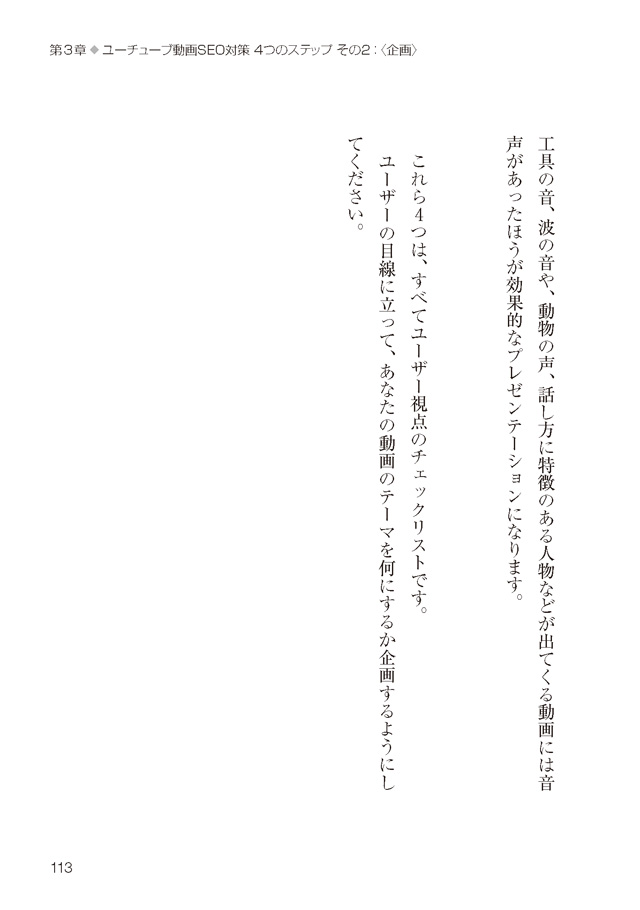 第3章◆ユーチューブ動画SEO対策 4つのステップ その2：〈企画〉
工具の音、波の音や、動物の声、話し方に特徴のある人物などが出てくる動画には音
声があったほうが効果的なプレゼンテーションになります。
これら4つは、すべてユーザー視点のチェックリストです。
ユーザーの目線に立って、あなたの動画のテーマを何にするか企画するようにし
てください。
113